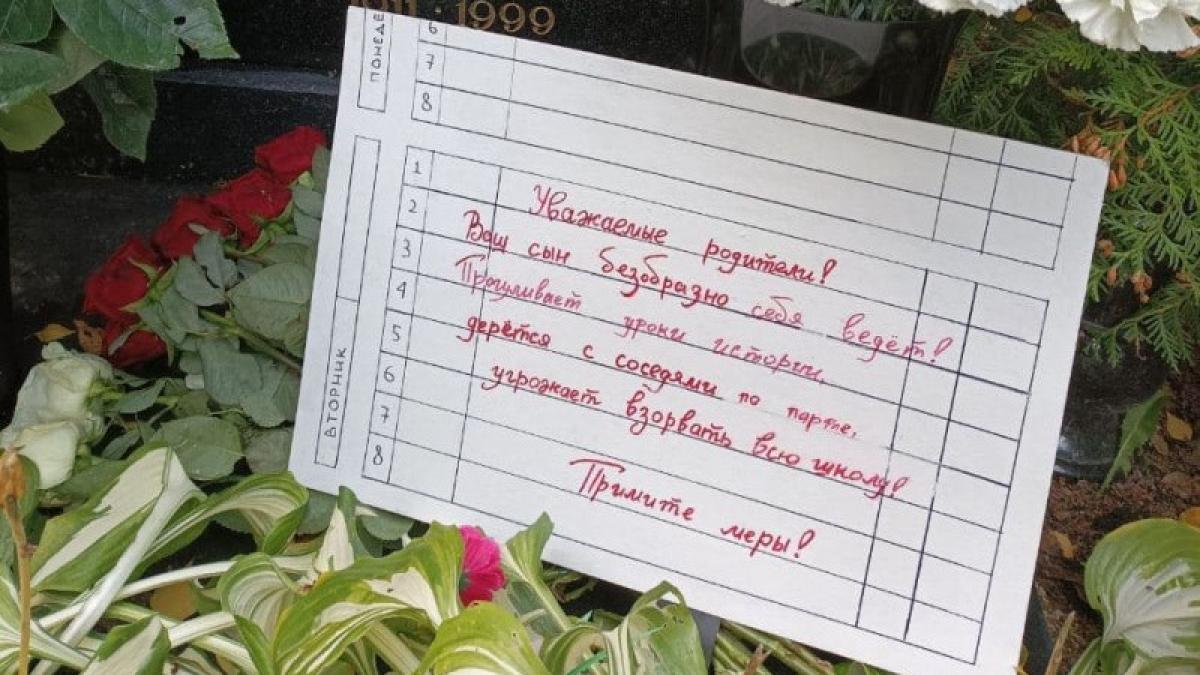 1999
ПОНЕД
6
7
8
ВТОРНИК
1
2
3
4
5
6
7
8
Уважаемые родители!
Ваш сын безобразно себя ведёт!
Прогуливает уроки истории,
дерётся с соседями по парте,
угрожает взорвать всю школу!
Примите меры!